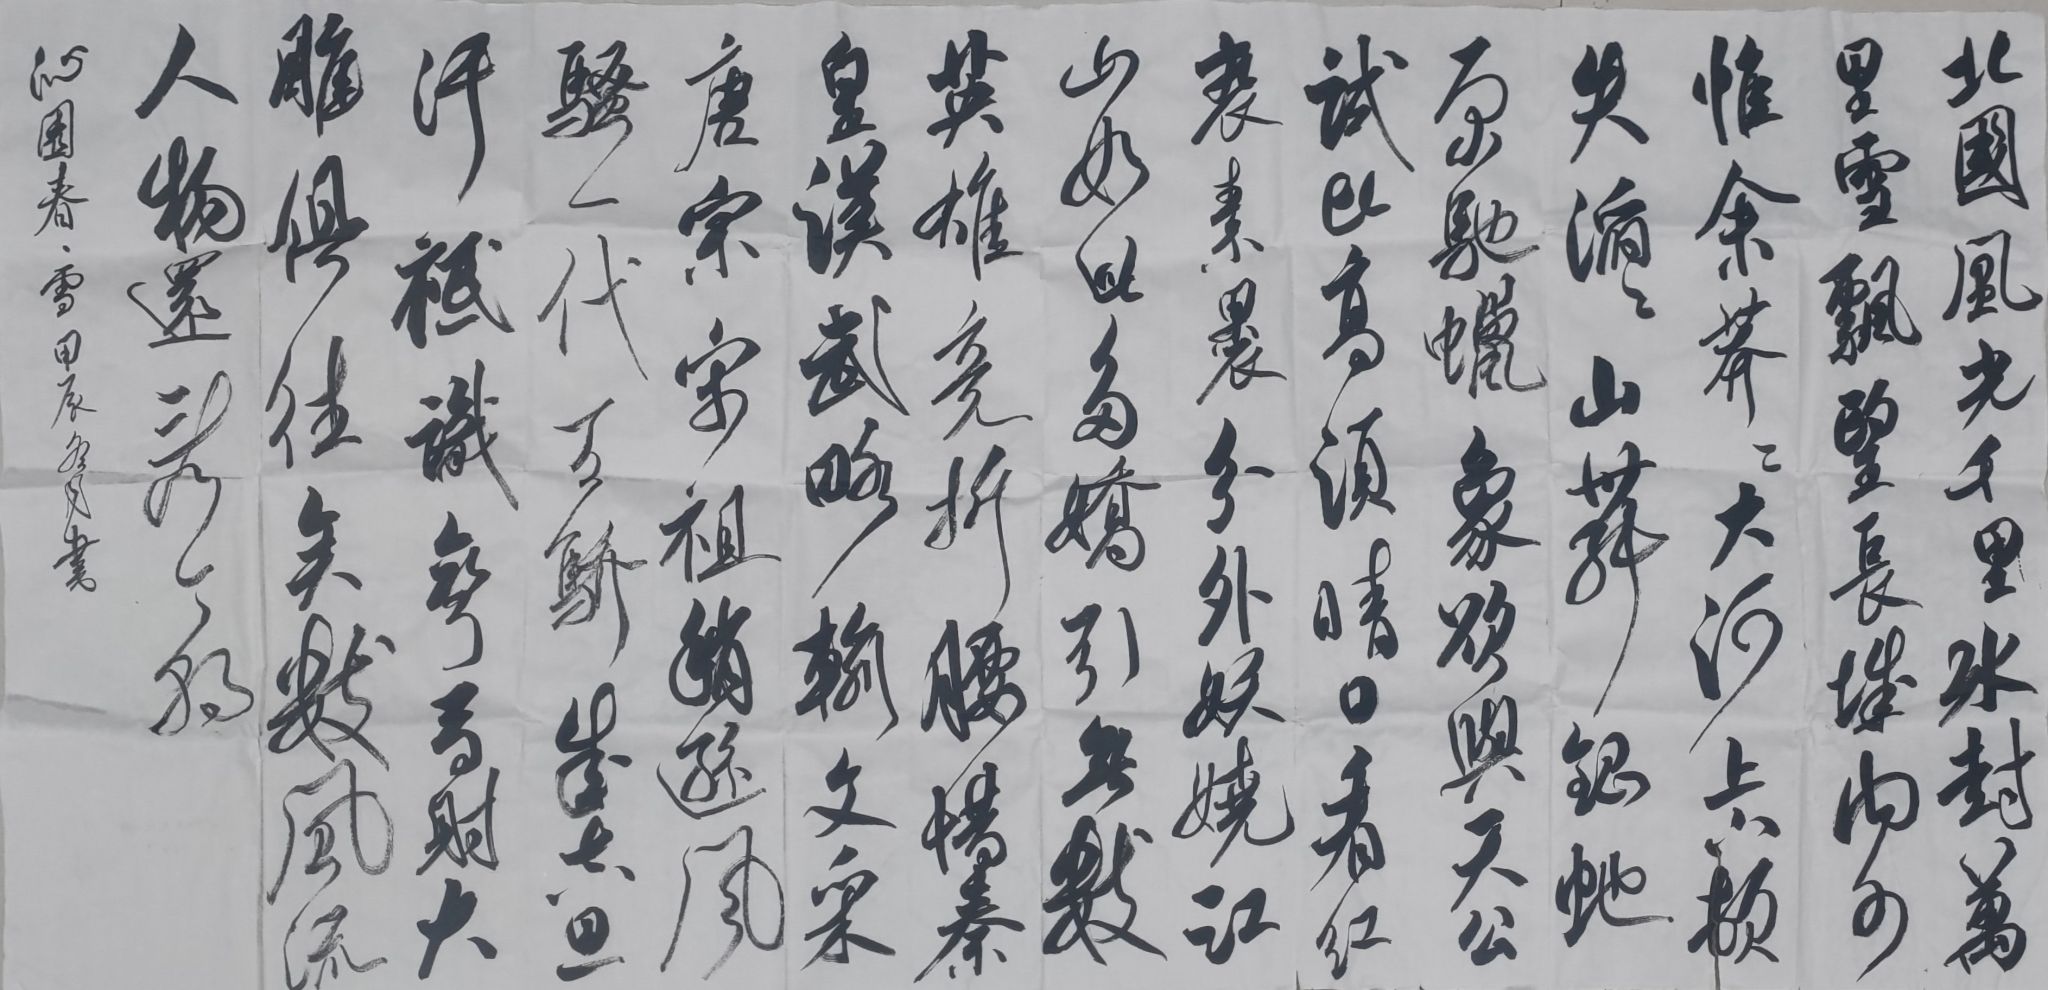 北國風光千里冰封萬
里雪飄望長城内外
惟余莽〻大河上下頓
失滔〻山舞銀蛇
原馳蠟象欲與天公
試比高須晴日看紅
裝素裹分外妖嬈江
山如此多嬌引無數
英雄竞折腰惜秦
皇漢武略輸文采
唐宗宋祖稍遜風
騷一代天驕成吉思
汗祇識彎弓射大
雕俱往矣數風流
人物還看今朝
沁園春·雪甲辰冬月書